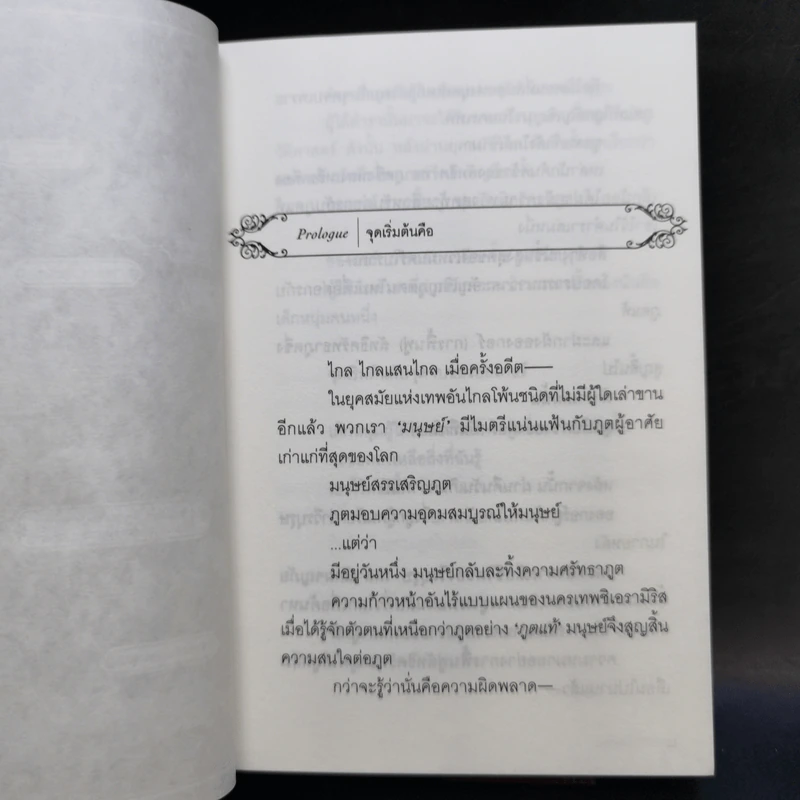 Prologue จุดเริ่มต้นคือ
ไกล ไกลแสนไกล เมื่อครั้งอดีต—
ในยุคสมัยแห่งเทพอันไกลโพ้นชนิดที่ไม่มีผู้ใดเล่าขาน
อีกแล้ว พวกเรา ‘มนุษย์’ มีไมตรีแน่นแฟ้นกับภูตผู้อาศัย
เก่าแก่ที่สุดของโลก
มนุษย์สรรเสริญภูต
ภูตมอบความอุดมสมบูรณ์ให้มนุษย์
...แต่ว่า
มีอยู่วันหนึ่ง มนุษย์กลับละทิ้งความศรัทธาภูต
ความก้าวหน้าอันไร้แบบแผนของนครเทพซิเอรามิริส
เมื่อได้รู้จักตัวตนที่เหนือกว่าภูตอย่าง ‘ภูตแท้’ มนุษย์จึงสูญสิ้น
ความสนใจต่อภูต
กว่าจะรู้ว่านั่นคือความผิดพลาด—